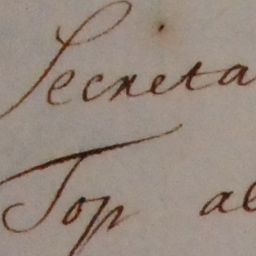 Secreta
Top al